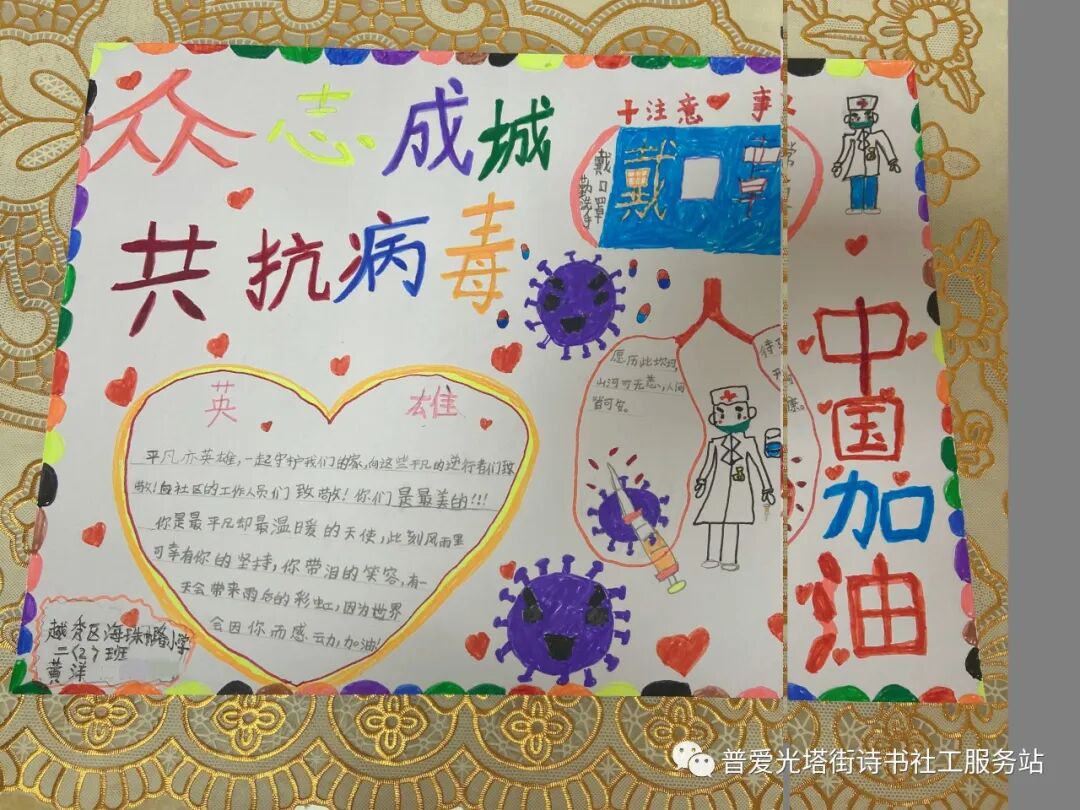 众志成城
共抗病毒
注意 事
戴口罩
勤洗手
戴口
英 雄
平凡亦英雄,一起守护我们的家,向这些平凡的逆行者们致
敬!向社区的工作人员们致敬!你们是最美的!!!
你是最平凡却最温暖的天使,此刻风雨里
可幸有你的坚持,你带泪的笑容,有一
天会带来雨后的彩虹,因为世界
会因你而感动加油!
愿历此坎坷,
山河可无恙,人间
皆可安。
待
中国加油
越秀区海珠中路小学
二(2)班
黄洋
普爱光塔街诗书社工服务站